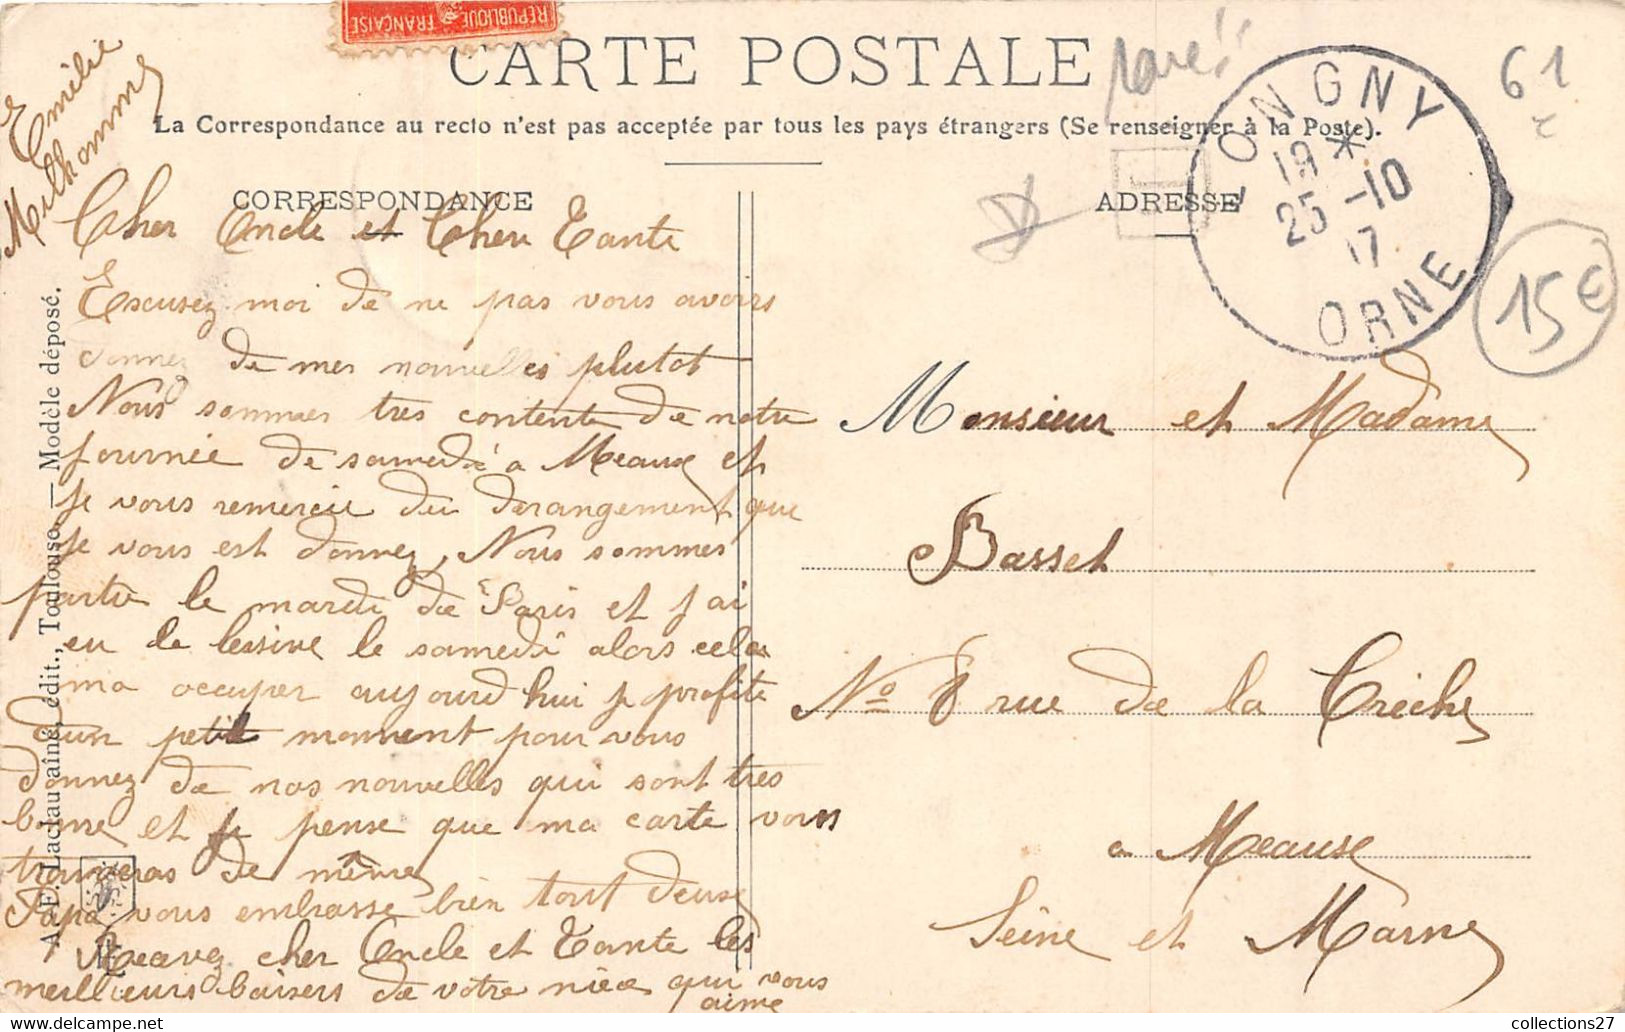 REPUBLIQUE FRANÇAISE
CARTE POSTALE
La Correspondance au recto n'est pas acceptée par tous les pays étrangers (Se renseigner à la Poste).
CORRESPONDANCE
ADRESSE
LONGNY
19 *
25 -10
17
ORNE
61
15€
T
Emilie
Milhomme
Cher Oncle et Chere Tante
Escusez moi de ne pas vous avoirs
donnez de mes nouvelles plutot
Nous sommes tres contente de notre
journée de samedi a Meaux et
je vous remercie du derangement que
je vous est donnez, Nous sommes
partie le mardi de Paris et j'ai
eu la lessive le samedi alors cela
ma occuper aujourd hui je profite
d'un petit momment pour vous
donnez de nos nouvelles qui sont tres
bonne et je pense que ma carte vous
trouveras de même
Papa vous embrasse bien tout deux
Recevez cher Oncle et Tante les
meilleurs baisers de votre nièce qui vous
aime
Monsieur et Madame
Basset
No 8 rue de la Crèche
a Meaux
Seine et Marne
A. F. Laclau aîné, édit., Toulouse. — Modèle déposé.
collections27